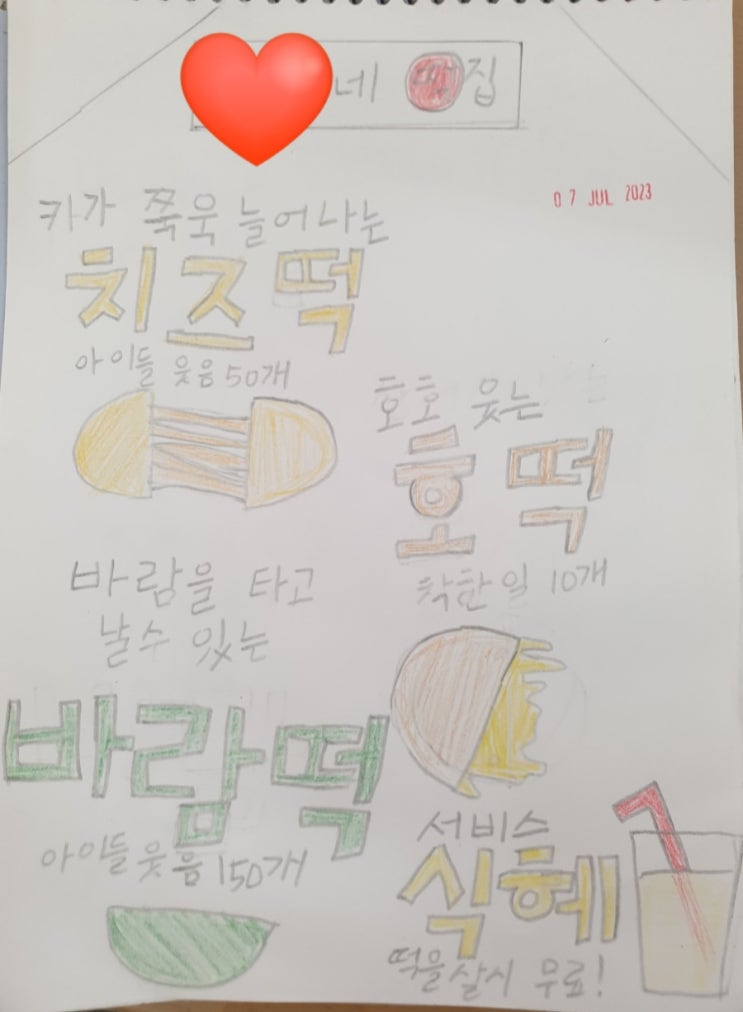 네 떡집
07 JUL 2023
키가 쭈욱 늘어나는
치즈떡
아이들 웃음 50개
호호 웃는
호떡
착한일 10개
바람을 타고
날수 있는
바람떡
아이들 웃음 150개
서비스
식혜
떡을 살시 무료!